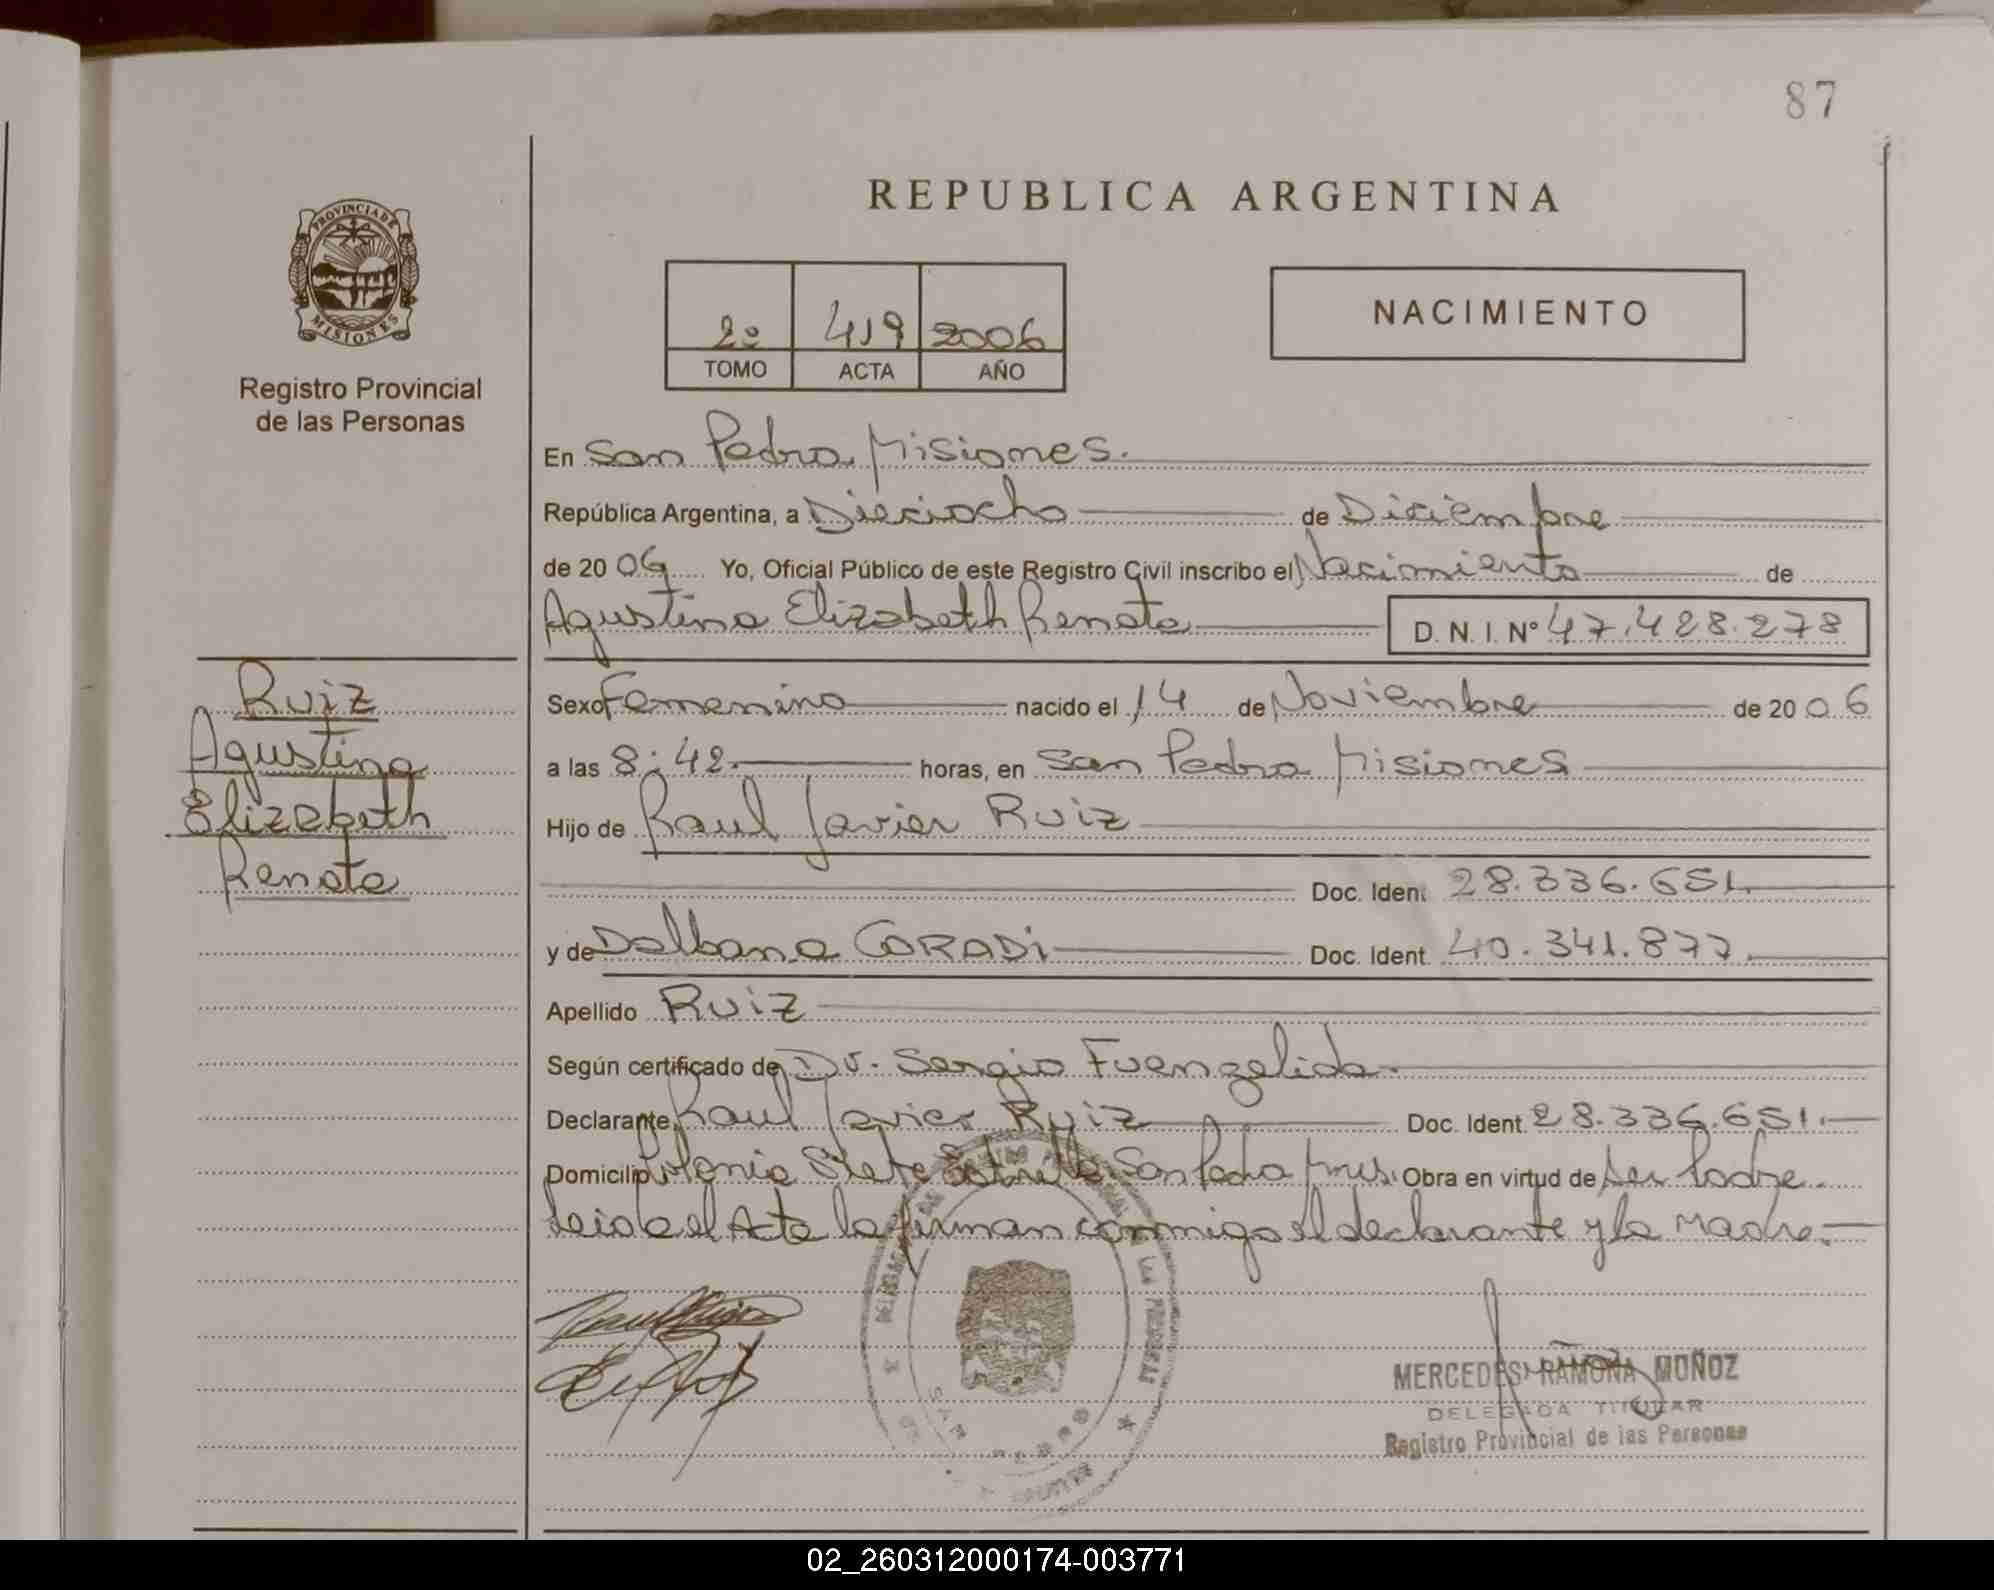 87
REPUBLICA ARGENTINA
PROVINCIA DE
MISIONES
Registro Provincial
de las Personas
2º 419 2006
TOMO ACTA AÑO
NACIMIENTO
En San Pedro Misiones.
República Argentina, a Dieciocho de Diciembre
de 20 06 Yo, Oficial Público de este Registro Civil inscribo el Nacimiento de
Agustina Elizabeth Renata D. N. I. Nº 47.428.278
Ruiz
Agustina
Elizabeth
Renata
Sexo Femenino nacido el 14 de Noviembre de 20 06
a las 8:42 horas, en San Pedro Misiones
Hijo de Raul Javier Ruiz
Doc. Ident 28.336.651.
y de Dalbana CORADI Doc. Ident 40.341.877.
Apellido Ruiz
Según certificado de Dr. Sergio Fuenzelida.
Declarante Raul Javier Ruiz Doc. Ident 28.336.651.
Domicilio Colonia Siete Estrella San Pedro Mnes. Obra en virtud de ser Padre.
leida el Acta la firman conmigo el declarante y la Madre.
MERCEDES RAMONA MUÑOZ
DELEGADA TITULAR
Registro Provincial de las Personas
SAN PEDRO
02_260312000174-003771